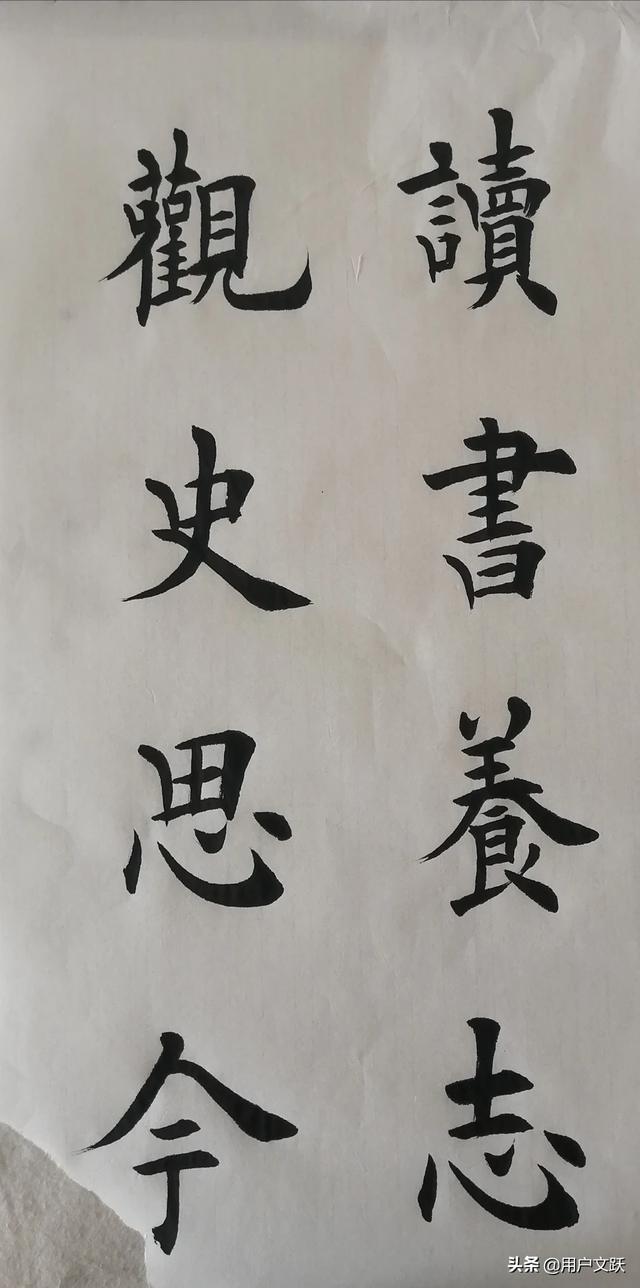 讀書養志
觀史思今
头条 @用户文跃